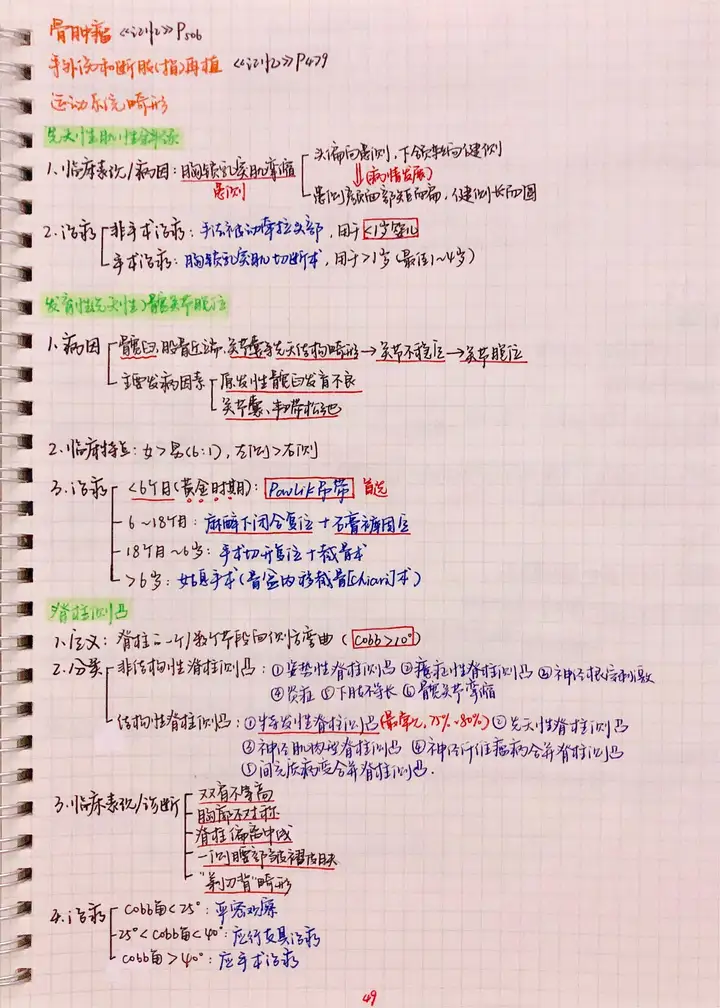 骨肿瘤 《记忆》P506
手外伤和断肢(指)再植 《记忆》P479
运动系统畸形
先天性肌性斜颈
1.临床表现/病因:胸锁乳突肌挛缩 头偏向患侧,下颌转向健侧
患侧 (病情发展)
患侧颜面部短而扁,健侧长而圆
2.治疗 非手术治疗:手法被动牵拉颈部,用于<1岁婴儿
手术治疗:胸锁乳突肌切断术,用于>1岁(最佳1~4岁)
发育性(先天性)髋关节脱位
1.病因 髋臼,股骨近端,关节囊等先天结构畸形→关节不稳定→关节脱位
主要发病因素 原发性髋臼发育不良
关节囊、韧带松弛
2.临床特点:女>男(6:1),左侧>右侧
3.治疗 <6个月(黄金时期):Pavlik吊带 首选
6~18个月:麻醉下闭合复位+石膏裤固定
18个月~6岁:手术切开复位+截骨术
>6岁:姑息手术(骨盆内移截骨[chiari]术)
脊柱侧凸
1.定义:脊柱的一个/数个节段向侧方弯曲(cobb>10°)
2.分类 非结构性脊柱侧凸:①姿势性脊柱侧凸 ②癔症性脊柱侧凸 ③神经根信刺激
④炎症 ⑤下肢不等长 ⑥髋关节挛缩
结构性脊柱侧凸:①特发性脊柱侧凸(最常见,75%~80%) ②先天性脊柱侧凸
③神经肌肉型脊柱侧凸 ④神经纤维瘤病合并脊柱侧凸
⑤间充质病变合并脊柱侧凸.
3.临床表现/诊断 双肩不等高
胸廓不对称
脊柱偏离中线
一侧腰部皱褶皮肤
"剃刀背"畸形
4.治疗 cobb角<25°:严密观察
25°<cobb角<40°:应行支具治疗
cobb角>40°:应手术治疗
49